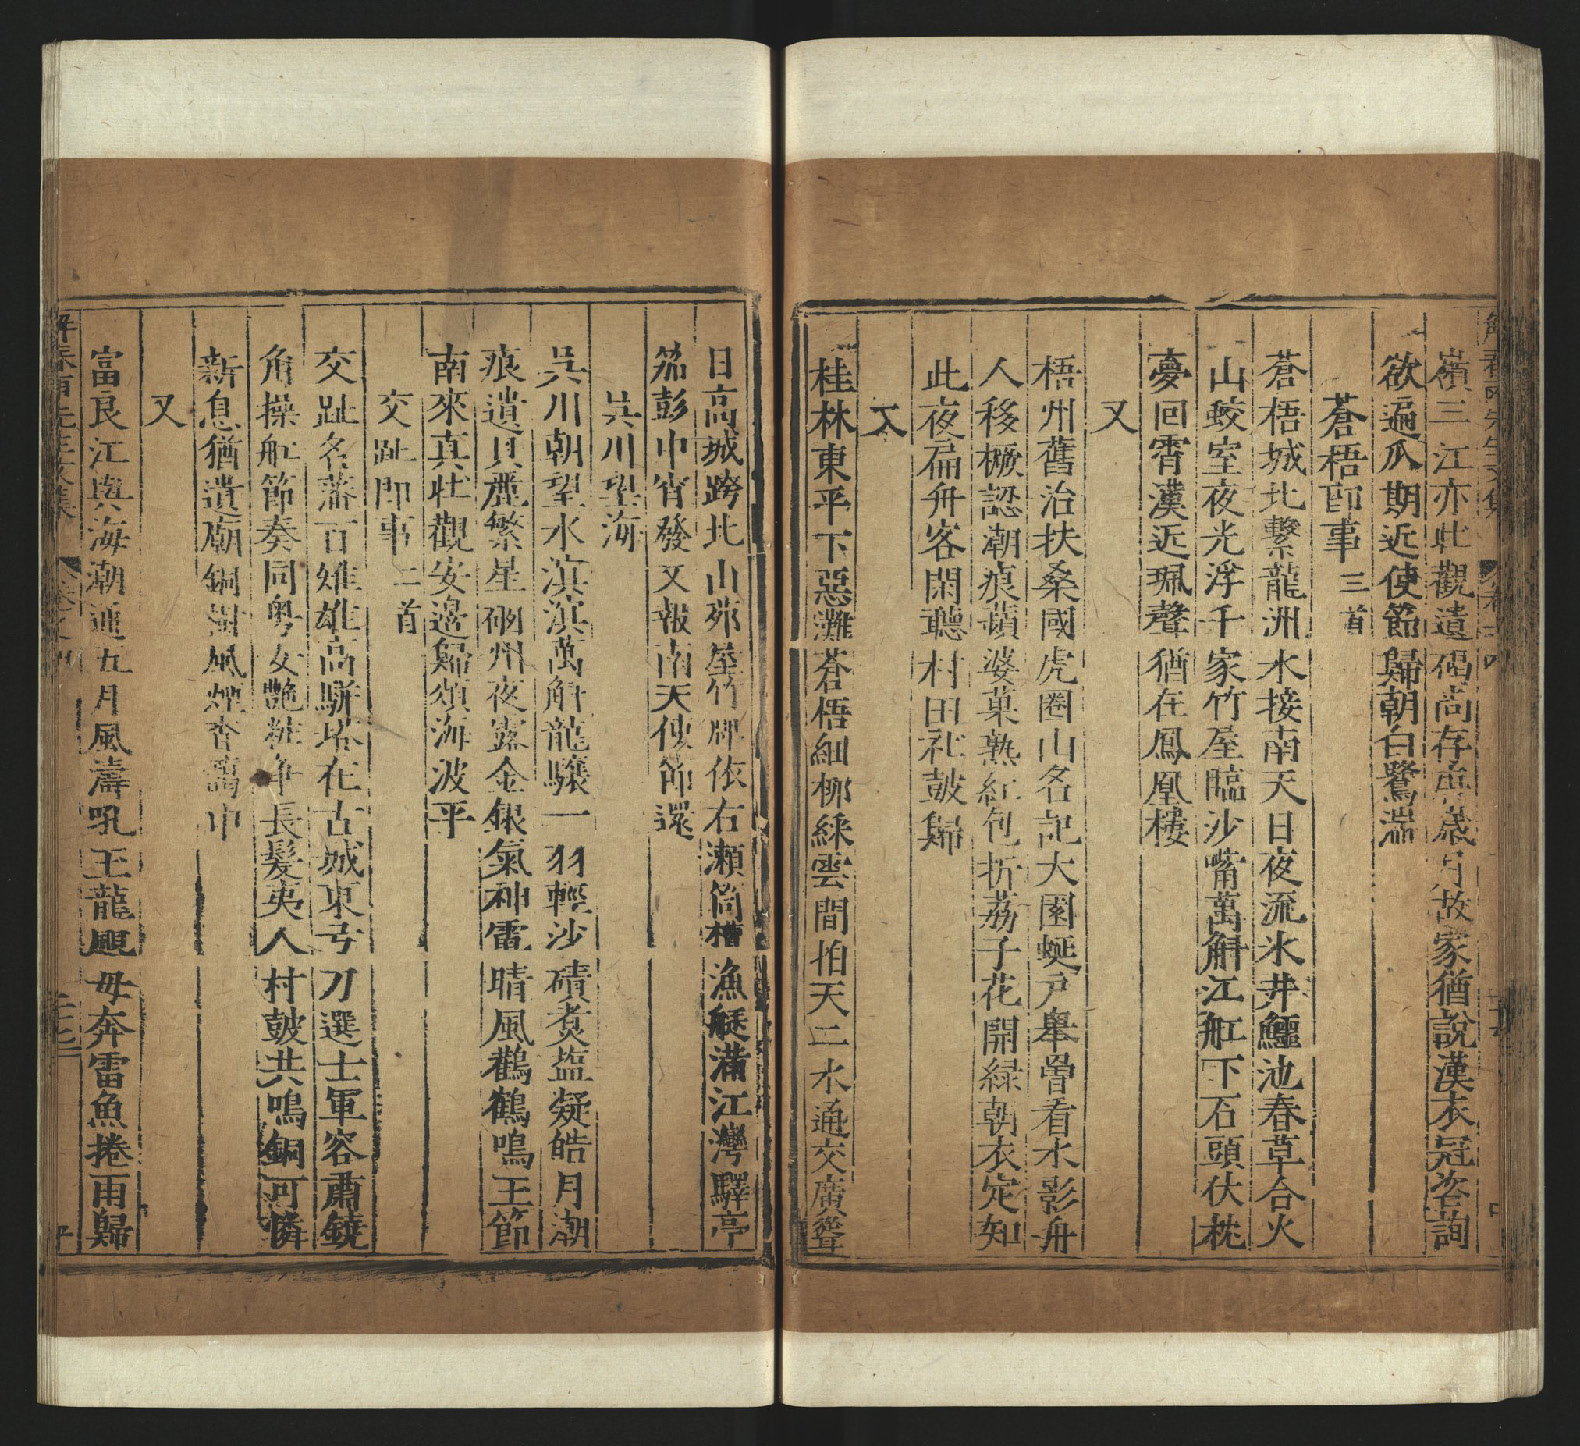 嶺三江亦壯觀遺碣尚存虞歲月故家猶說漢衣冠咨詢
欲遍瓜期近使節歸朝白鷺湍
蒼梧即事三首
蒼梧城北繫龍洲水接南天日夜流氷井鱷池春草合火
山蛟室夜光浮千家竹屋臨沙嘴萬斛江舡下石頭伏枕
夢回霄漢近珮聲猶在鳳凰樓
又
梧州舊治扶桑國虎圈山名記大園蜒戶舉罾看水影舟
人移橛認潮痕蘋婆菓熟紅包折荔子花開緑萼衣定知
此夜扁舟客閑聽村田社鼓歸
又
桂林東平下惡灘蒼梧細柳綵雲間拍天二水通交廣聳
日高城跨北山茆屋竹牌依右瀬筒槽漁艇滿江灣驛亭
笳彭中宵發又報南天使節還
吳川望海
吳川朝望水滇滇萬斛龍驤一羽輕沙磧煑塩凝皓月潮
痕遺貝麗繁星硇州夜露金銀氣神電晴風鸛鶴鳴王節
南來真壯觀安邊歸頌海波平
交趾即事二首
交趾名藩百雉雄高駢塔在古城東弓刀選士軍容肅鐃
角操舡節奏同粤女艷粧爭長髮夷人村鼓共鳴銅可憐
新息猶遺廟銅柱風煙杳靄中
又
富良江與海潮通九月風濤吼王龍颶毋奔雷魚捲雨歸